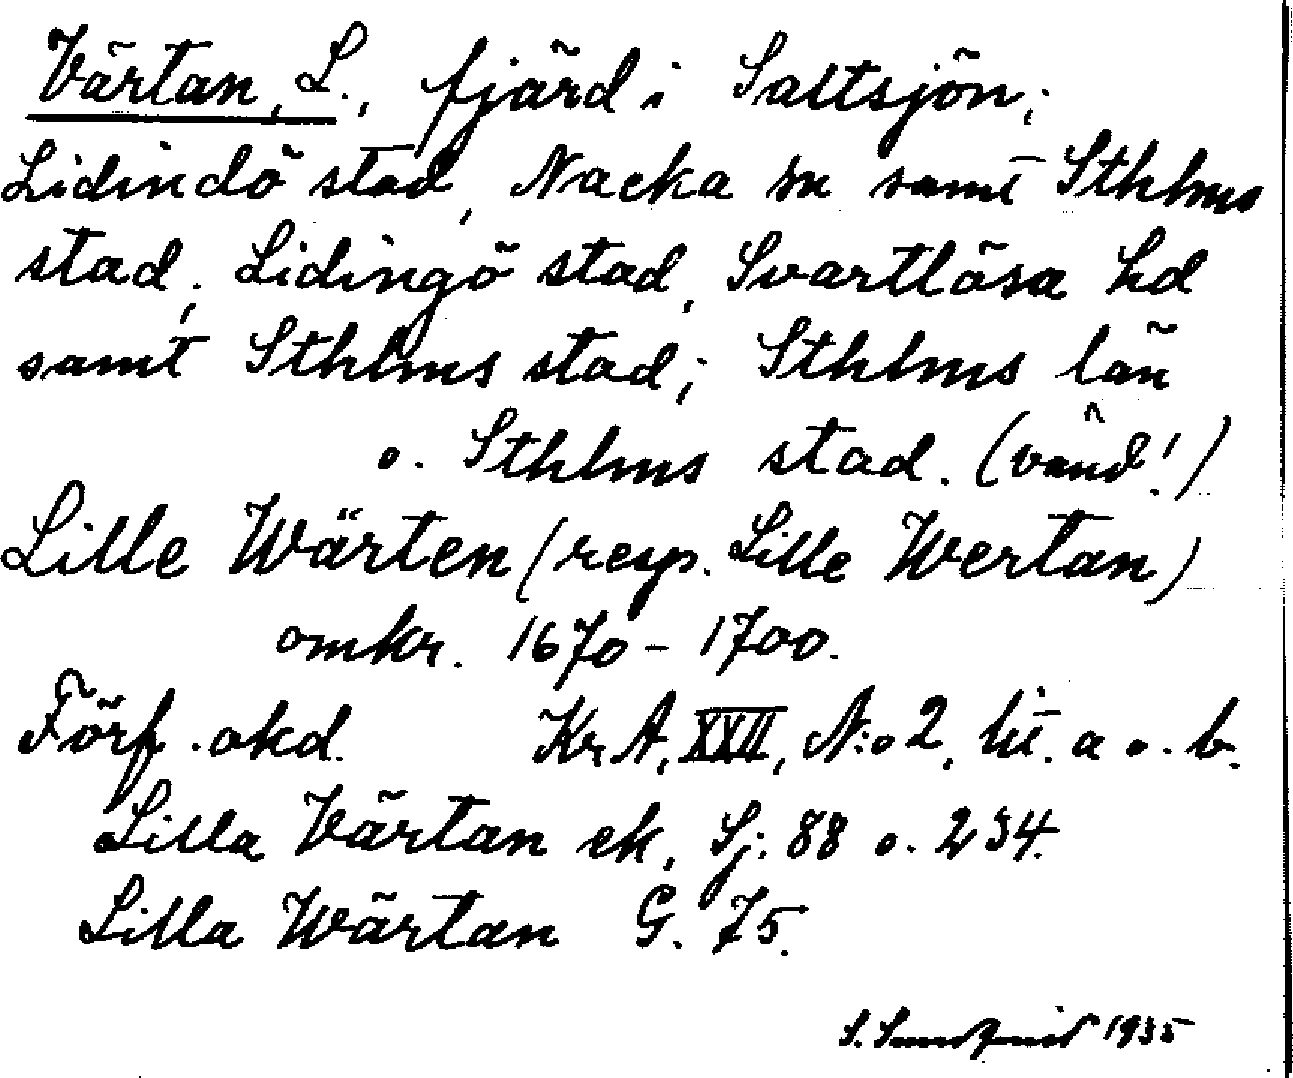 Värtan, L., fjärd i Saltsjön;
Lidindö stad, Nacka sn samt Sthlms
stad; Lidingö stad, Svartlösa hd
samt Sthlms stad; Sthlms län
o. Sthlms stad. (vänd!)
Lille Wärten (resp. Lille Wertan)
omkr. 1670-1700.
Förf. okd. KrA, XXII, N:o 2, lit. a o. b.
Lilla Värtan ek, Sj. 88 o. 234.
Lilla Wärtan G. 75.
S. Sundqvist 1935